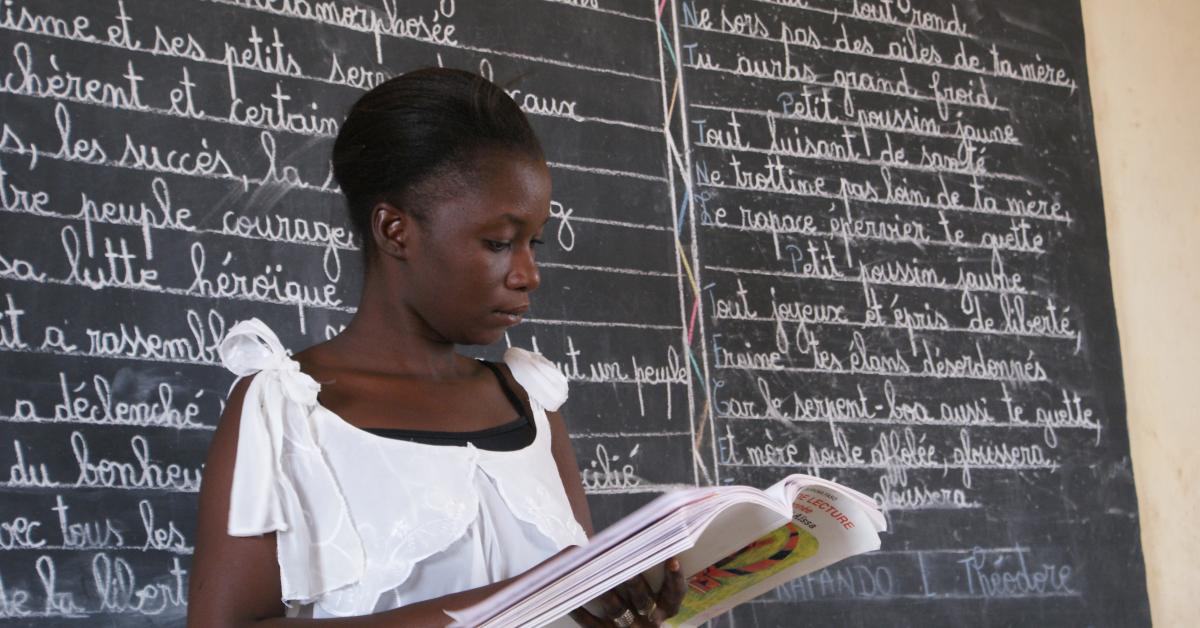 métamorphosée
isme et ses petits
chèrent et certain caux
s, les succès, la
tre peuple courage
sa lutte héroïque
it a rassembl ut un peuple
a déclenché
du bonheu cilié
vec tous les
de la libert
tout rond
Ne sors pas des ailes de ta mère,
Tu auras grand froid.
Petit poussin jaune
Tout luisant de santé
Ne trottine pas loin de ta mère,
Le rapace épervier te guette
Petit poussin jaune
Tout joyeux et épris de liberté,
Freine tes élans désordonnés
Car le serpent-boa aussi te guette,
Et mère poule affolée, gloussera,
gloussera.
NAFANDO I. Théodore
DE LECTURE